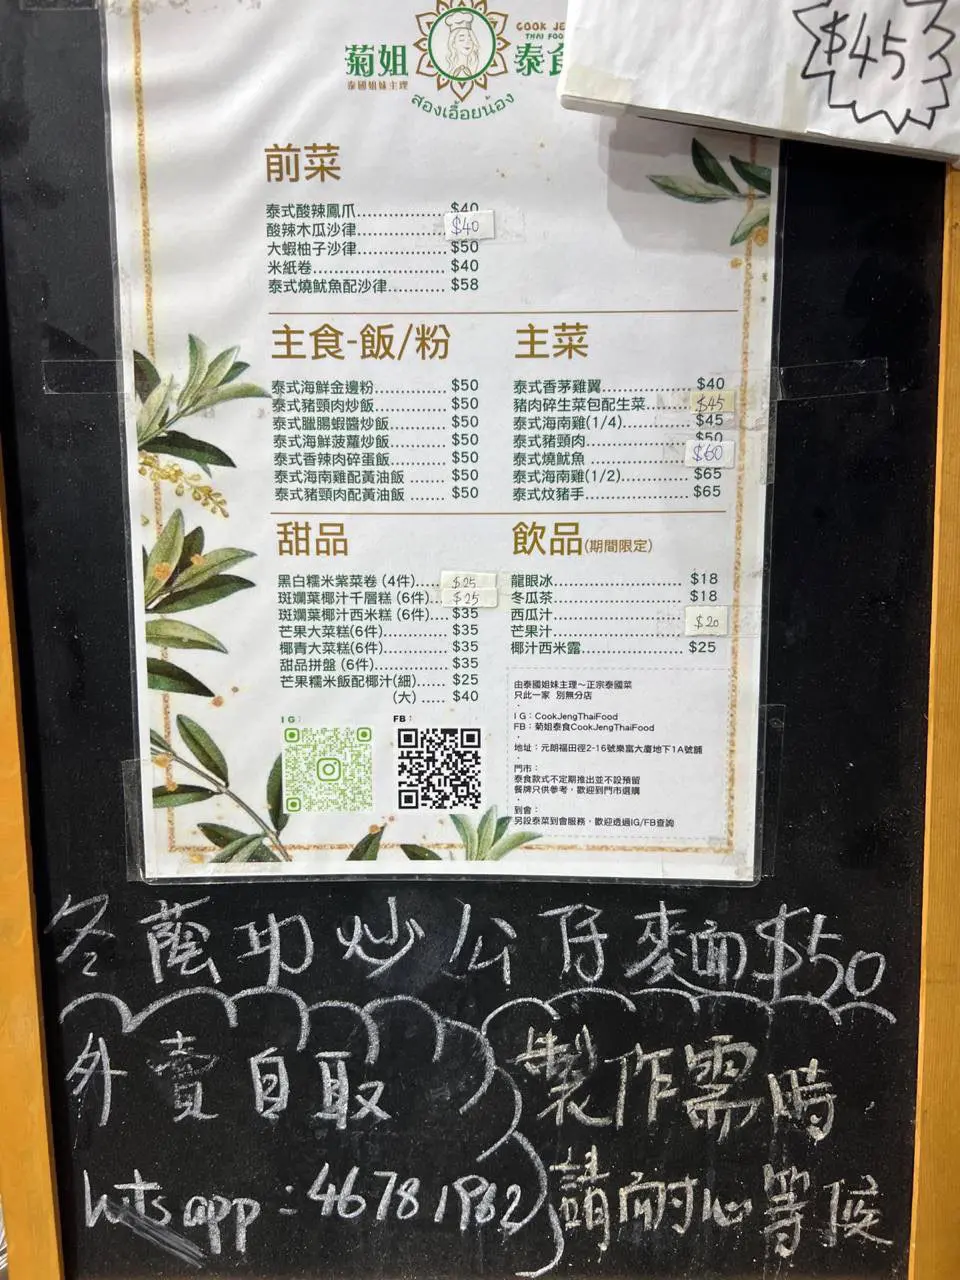 $45
COOK JE
THAI FOO
菊姐
泰食
泰國姐妹主理
สองเอื้อยน้อง
前菜
泰式酸辣鳳爪 $40
酸辣木瓜沙律 $40
大蝦柚子沙律 $50
米紙卷 $40
泰式燒魷魚配沙律 $58
主食-飯/粉
泰式海鮮金邊粉 $50
泰式豬頸肉炒飯 $50
泰式臘腸蝦醬炒飯 $50
泰式海鮮菠蘿炒飯 $50
泰式香辣肉碎蛋飯 $50
泰式海南雞配黃油飯 $50
泰式豬頸肉配黃油飯 $50
主菜
泰式香茅雞翼 $40
豬肉碎生菜包配生菜 $45
泰式海南雞(1/4) $45
泰式豬頸肉 $50
泰式燒魷魚 $60
泰式海南雞(1/2) $65
泰式炆豬手 $65
甜品
黑白糯米紫菜卷 (4件) $25
斑斕葉椰汁千層糕 (6件) $25
斑斕葉椰汁西米糕 (6件) $35
芒果大菜糕(6件) $35
椰青大菜糕(6件) $35
甜品拼盤 (6件) $35
芒果糯米飯配椰汁(細) $25
(大) $40
飲品(期間限定)
龍眼冰 $18
冬瓜茶 $18
西瓜汁
芒果汁 $20
椰汁西米露 $25
IG:
FB:
由泰國姐妹主理～正宗泰國菜
只此一家 別無分店
IG：CookJengThaiFood
FB：菊姐泰食CookJengThaiFood
地址：元朗福田徑2-16號樂富大廈地下1A號舖
門市：
泰食款式不定期推出並不設預留
餐牌只供參考，歡迎到門市選購
到會：
另設泰菜到會服務，歡迎透過IG/FB查詢
冬蔭功炒公仔麵$50
外賣自取
whtsapp：46781962
製作需時
請耐心等候